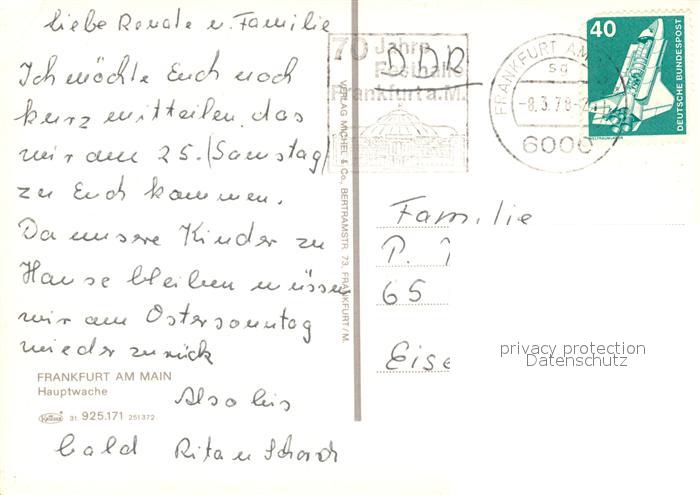 liebe Renate u. Familie
Ich möchte Euch noch
kurz mitteilen, das
wir am 25. (Samstag)
zu Euch kommen.
Da unsere Kinder zu
Hause bleiben müssen
wir am Ostersonntag
wieder zurück
Also bis
bald Rita u
FRANKFURT AM MAIN
Hauptwache
Krüger 31. 925.171 251372
VERLAG MICHEL & Co., BERTRAMSTR. 73, FRANKFURT/M.
70 Jahre
Festhalle
Frankfurt a.M.
DDR
FRANKFURT AM
sg
-8.3.78-
6000
40
DEUTSCHE BUNDESPOST
Familie
P.
65
Eise
privacy protection
Datenschutz